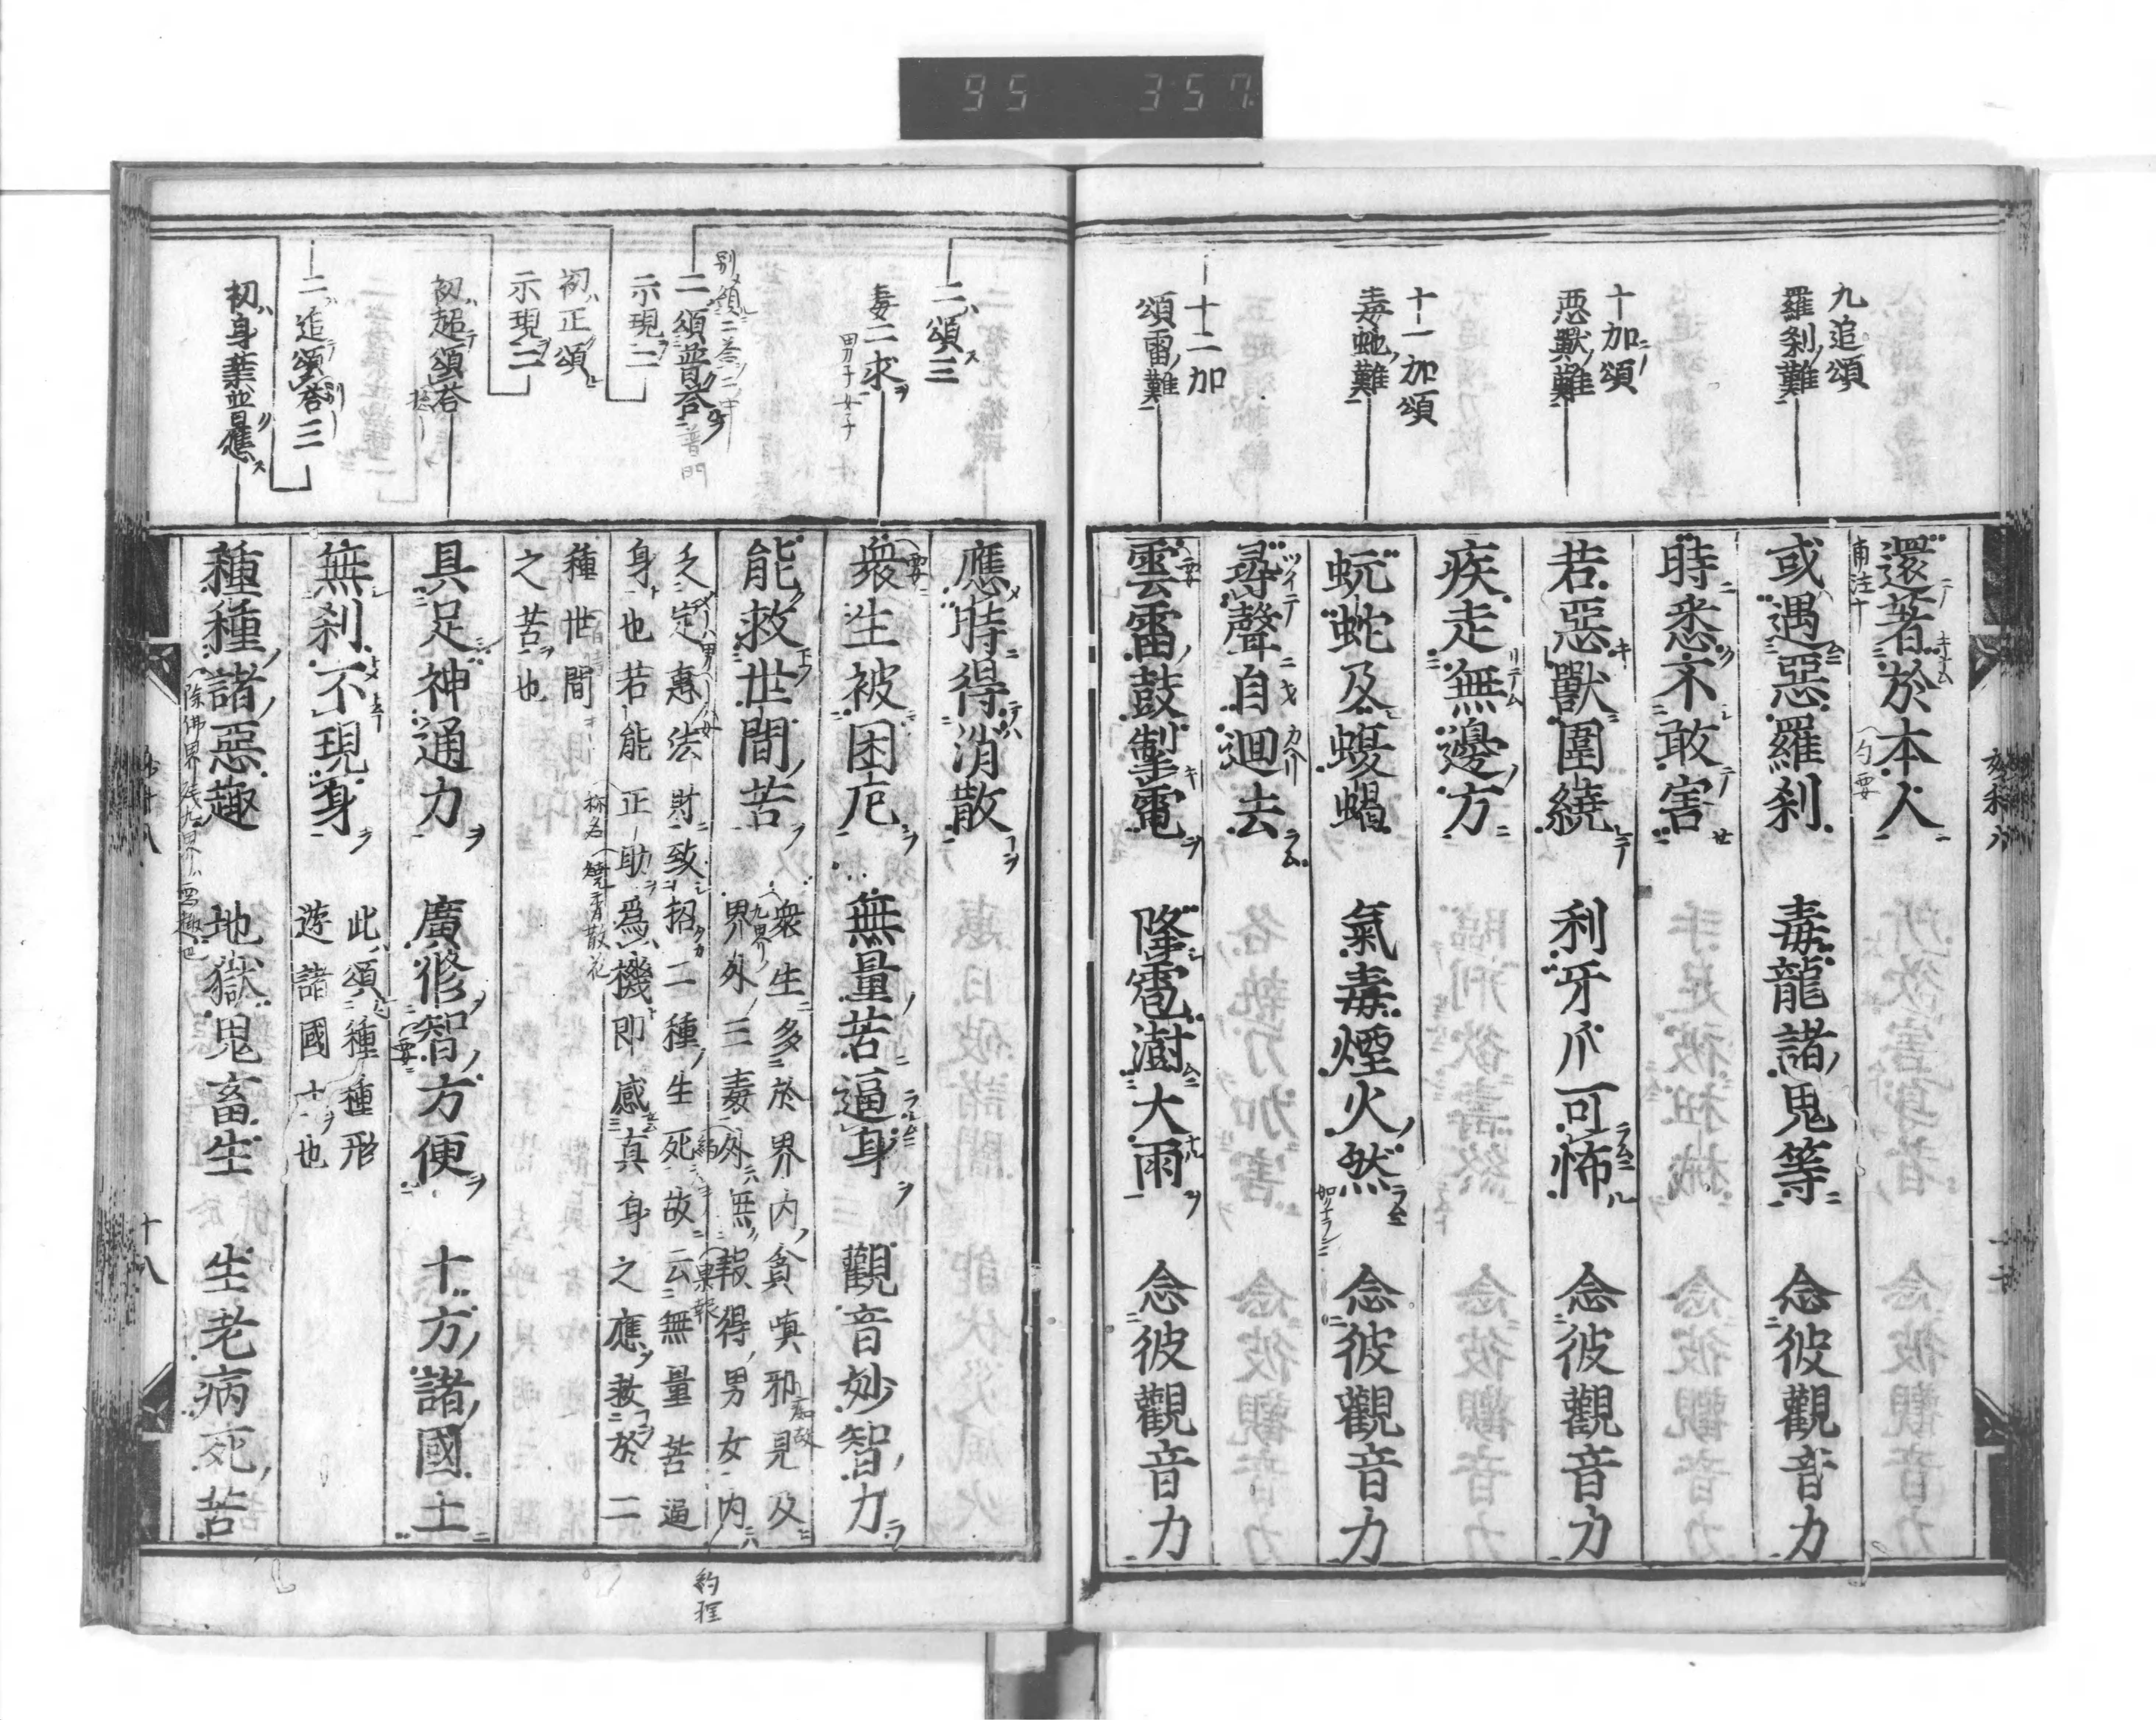 95 357
九追頌
羅刹難
十加頌
惡獸難
十一加頌
毒虵難
十二加
頌雷難
還著於本人
或遇惡羅刹 毒龍諸鬼等 念彼觀音力
時悉不敢害
若惡獸圍繞 利牙爪可怖 念彼觀音力
疾走無邊方
蚖蛇及蝮蝎 氣毒煙火然 念彼觀音力
尋聲自迴去
雲雷鼓掣電 降雹澍大雨 念彼觀音力
二頌三
毒二求
男子女子
二頌普荅
普門
示現二
初正頌
示現二
初超頌荅
二追頌荅三
初身業並應
應時得消散
衆生被困厄 無量苦逼身 觀音妙智力
能救世間苦
衆生多於界内貪嗔邪見及
界外三毒外無報得男女内
乏定惠法財致招二種生死故云無量苦逼
身也若能正助爲機即感真身之應救於二
種世間
之苦也
稱名
燒香散花
具足神通力 廣修智方便 十方諸國土
無刹不現身
此頌種種形
遊諸國土也
種種諸惡趣 地獄鬼畜生 生老病死苦
十八